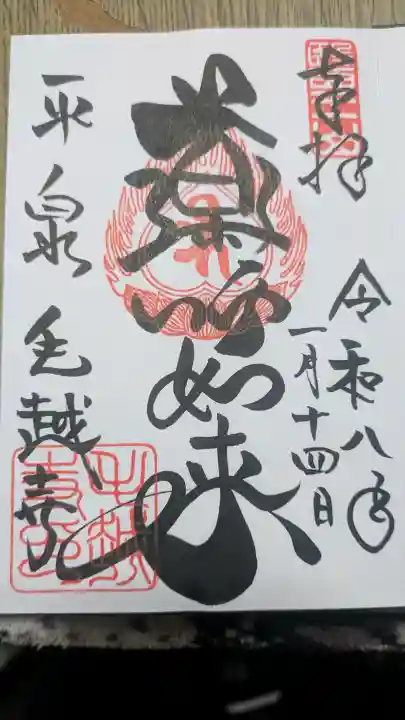 奉拝
令和八年
一月十四日
薬師如来
平泉毛越寺